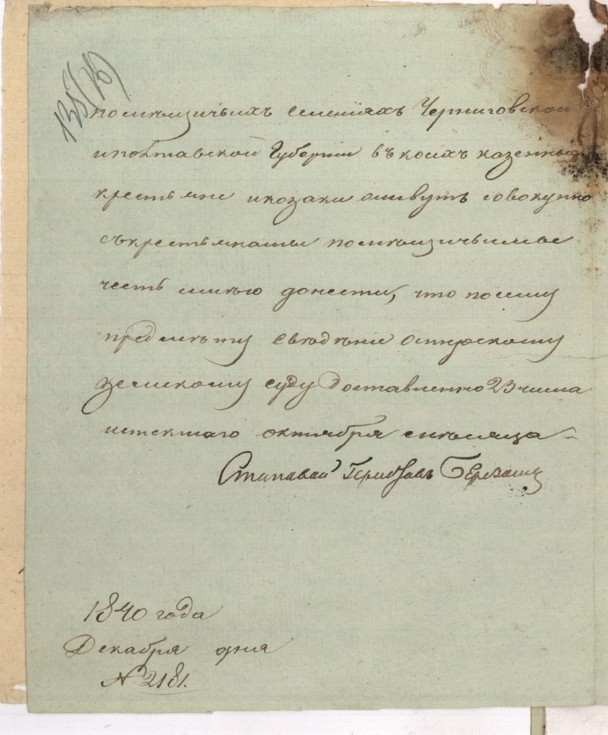 помѣщичьихъ селеніяхъ Черниговской
и полтавской Губерніи въ коихъ казенные
крестьяне и козаки живутъ совокупно
съ крестьянами помѣщичьими
честь имѣю донести, что по сему
предмѣту свѣдѣніе остерскому
земскому суду доставленно 23 числа
истекшаго октября мѣсяца
Становой Приставъ
1840 года
Декабря дня
№ 2181.